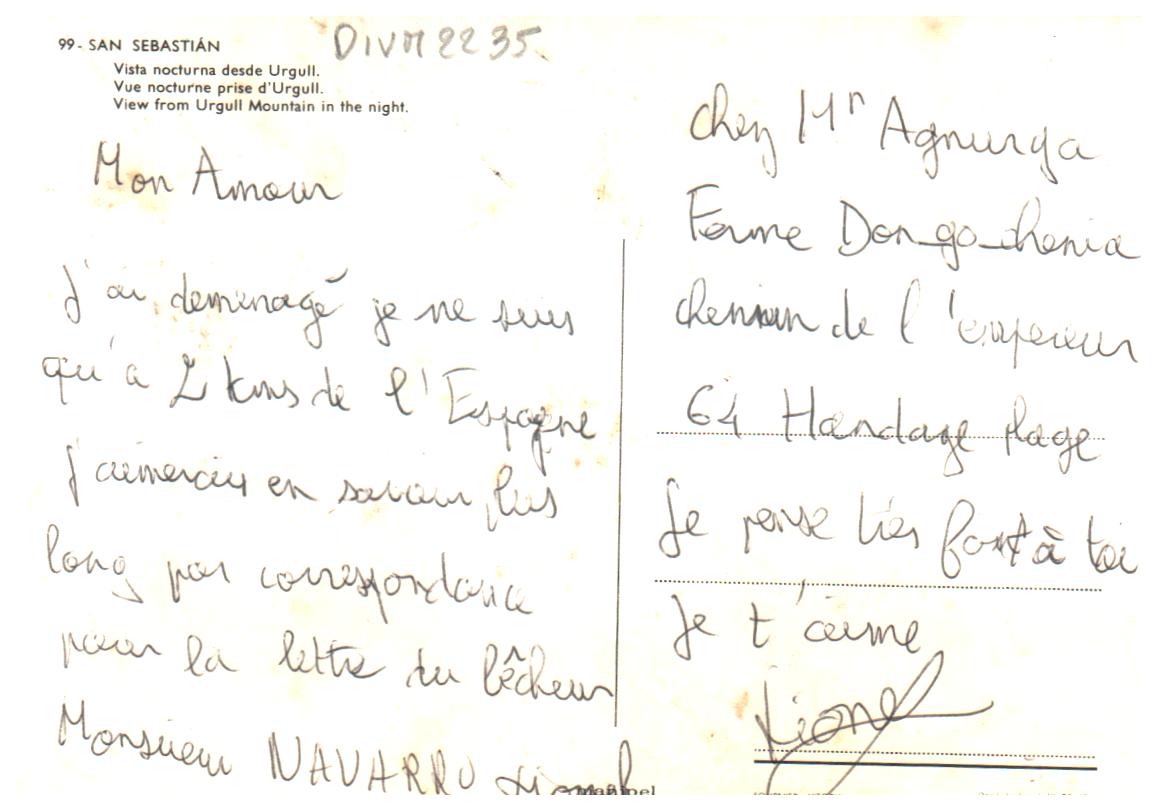 99 - SAN SEBASTIÁN
Vista nocturna desde Urgull.
Vue nocturne prise d'Urgull.
View from Urgull Mountain in the night.
DIVM 2235
Mon Amour
J'ai demenagé je ne suis
qu'à 2 kms de l'Espagne
J'aimerais en savoir plus
long par correspondance
pour la lettre du bêcheur
Monsieur NAVARRO Lionel
chez Mr Agnurga
Ferme Dongochenia
chemin de l'empereur
64 Handaye plage
Je pense très fort à toi
Je t'aime
Lionel